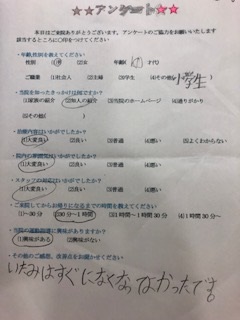 ★☆アンケート☆★
本日はご来院ありがとうございます。アンケートのご協力をお願いいたします
該当するところに○印をつけてください
・年齢,性別を教えてください
性別 (1)男 (2)女 年齢( )才代
ご職業 (1)社会人 (2)主婦 (3)学生 (4)その他( 小学生
・当院を知ったきっかけは何ですか?
(1)家族の紹介 (2)知人の紹介 (3)当院のホームページ (4)通りがかり
(5)その他( )
・治療内容はいかがでしたか?
(1)大変良い (2)良い (3)普通 (4)悪い (5)よくわからない
・院内の雰囲気はいかがでしたか?
(1)大変良い (2)良い (3)普通 (4)悪い
・スタッフの対応はいかがでしたか?
(1)大変良い (2)良い (3)普通 (4)悪い
・ご来院してからお帰りになるまでの時間を教えてください
(1)~30分 (2)30分~1時間 (3)1時間~1時間30分 (4)1時間30分~
(1)興味がある (2)興味がない
・その他のご感想、改善点をお聞かせください
いたみはすぐになくなってよかったです